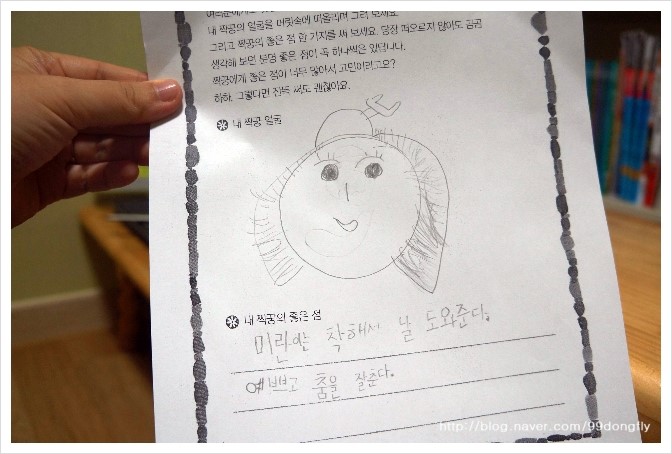 내 짝꿍의 얼굴을 머릿속에 떠올리며 그려 보세요.
그리고 짝꿍의 좋은 점 한 가지를 써 보세요. 당장 떠오르지 않아도 곰곰
생각해 보면 분명 좋은 점이 꼭 하나씩은 있답니다.
짝꿍에게 좋은 점이 너무 많아서 고민이라고요?
하하, 그렇다면 잔뜩 써도 괜찮아요.
내 짝꿍 얼굴
내 짝꿍의 좋은 점
미란이는 착해서 날 도와준다.
예쁘고 춤을 잘춘다.
http://blog.naver.com/99dongfly